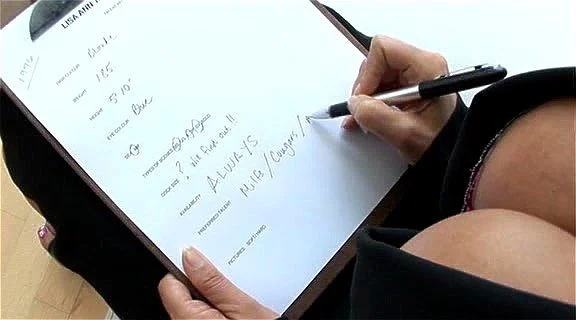 LISA ANN
Blonde
WEIGHT 185
HEIGHT 5'10"
EYE COLOUR Blue
TYPES OF SCENES
COCK SIZE ? find out!!
AVAILABILITY ALWAYS
PREFERRED TALENT Milfs / Cougars /
PICTURES SOFT/HARD